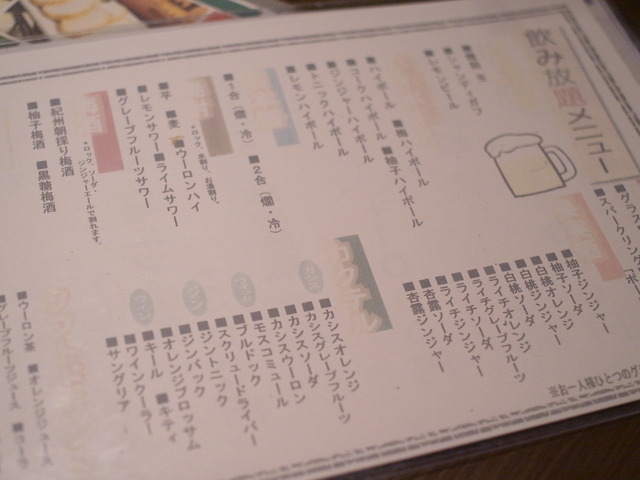 飲み放題メニュー
■シャンディガフ
■レモンビール
■ハイボール ■梅ハイボール
■コークハイボール ■柚子ハイボール
■ジンジャーハイボール
■トニックハイボール
■レモンハイボール
■1合(燗・冷) ■2合(燗・冷)
■芋 ■麦
*ロック、水割り、お湯割り。
■ウーロンハイ
■レモンサワー ■ライムサワー
■グレープフルーツサワー
*ロック、ソーダ・
ジンジャーエールで割れます。
■紀州朝採り梅酒
■柚子梅酒 ■黒糖梅酒
■スパークリング
■柚子ジンジャー
■柚子ソーダ
■白桃オレンジ
■白桃ジンジャー
■白桃ソーダ
■ライチオレンジ
■ライチグレープフルーツ
■ライチソーダ
■ライチジンジャー
■杏露ソーダ
■杏露ジンジャー
カクテル
カシス
■カシスオレンジ
■カシスグレープフルーツ
■カシスソーダ
■カシスウーロン
■モスコミュール
■ブルドック
■スクリュードライバー
ジン
■ジントニック
■ジンバック
■オレンジブロッサム
ワイン
■キール ■キティ
■ワインクーラー
■サングリア
■ウーロン茶 ■オレンジジュース
■グレープフルーツジュース
※お一人様ひとつのグ